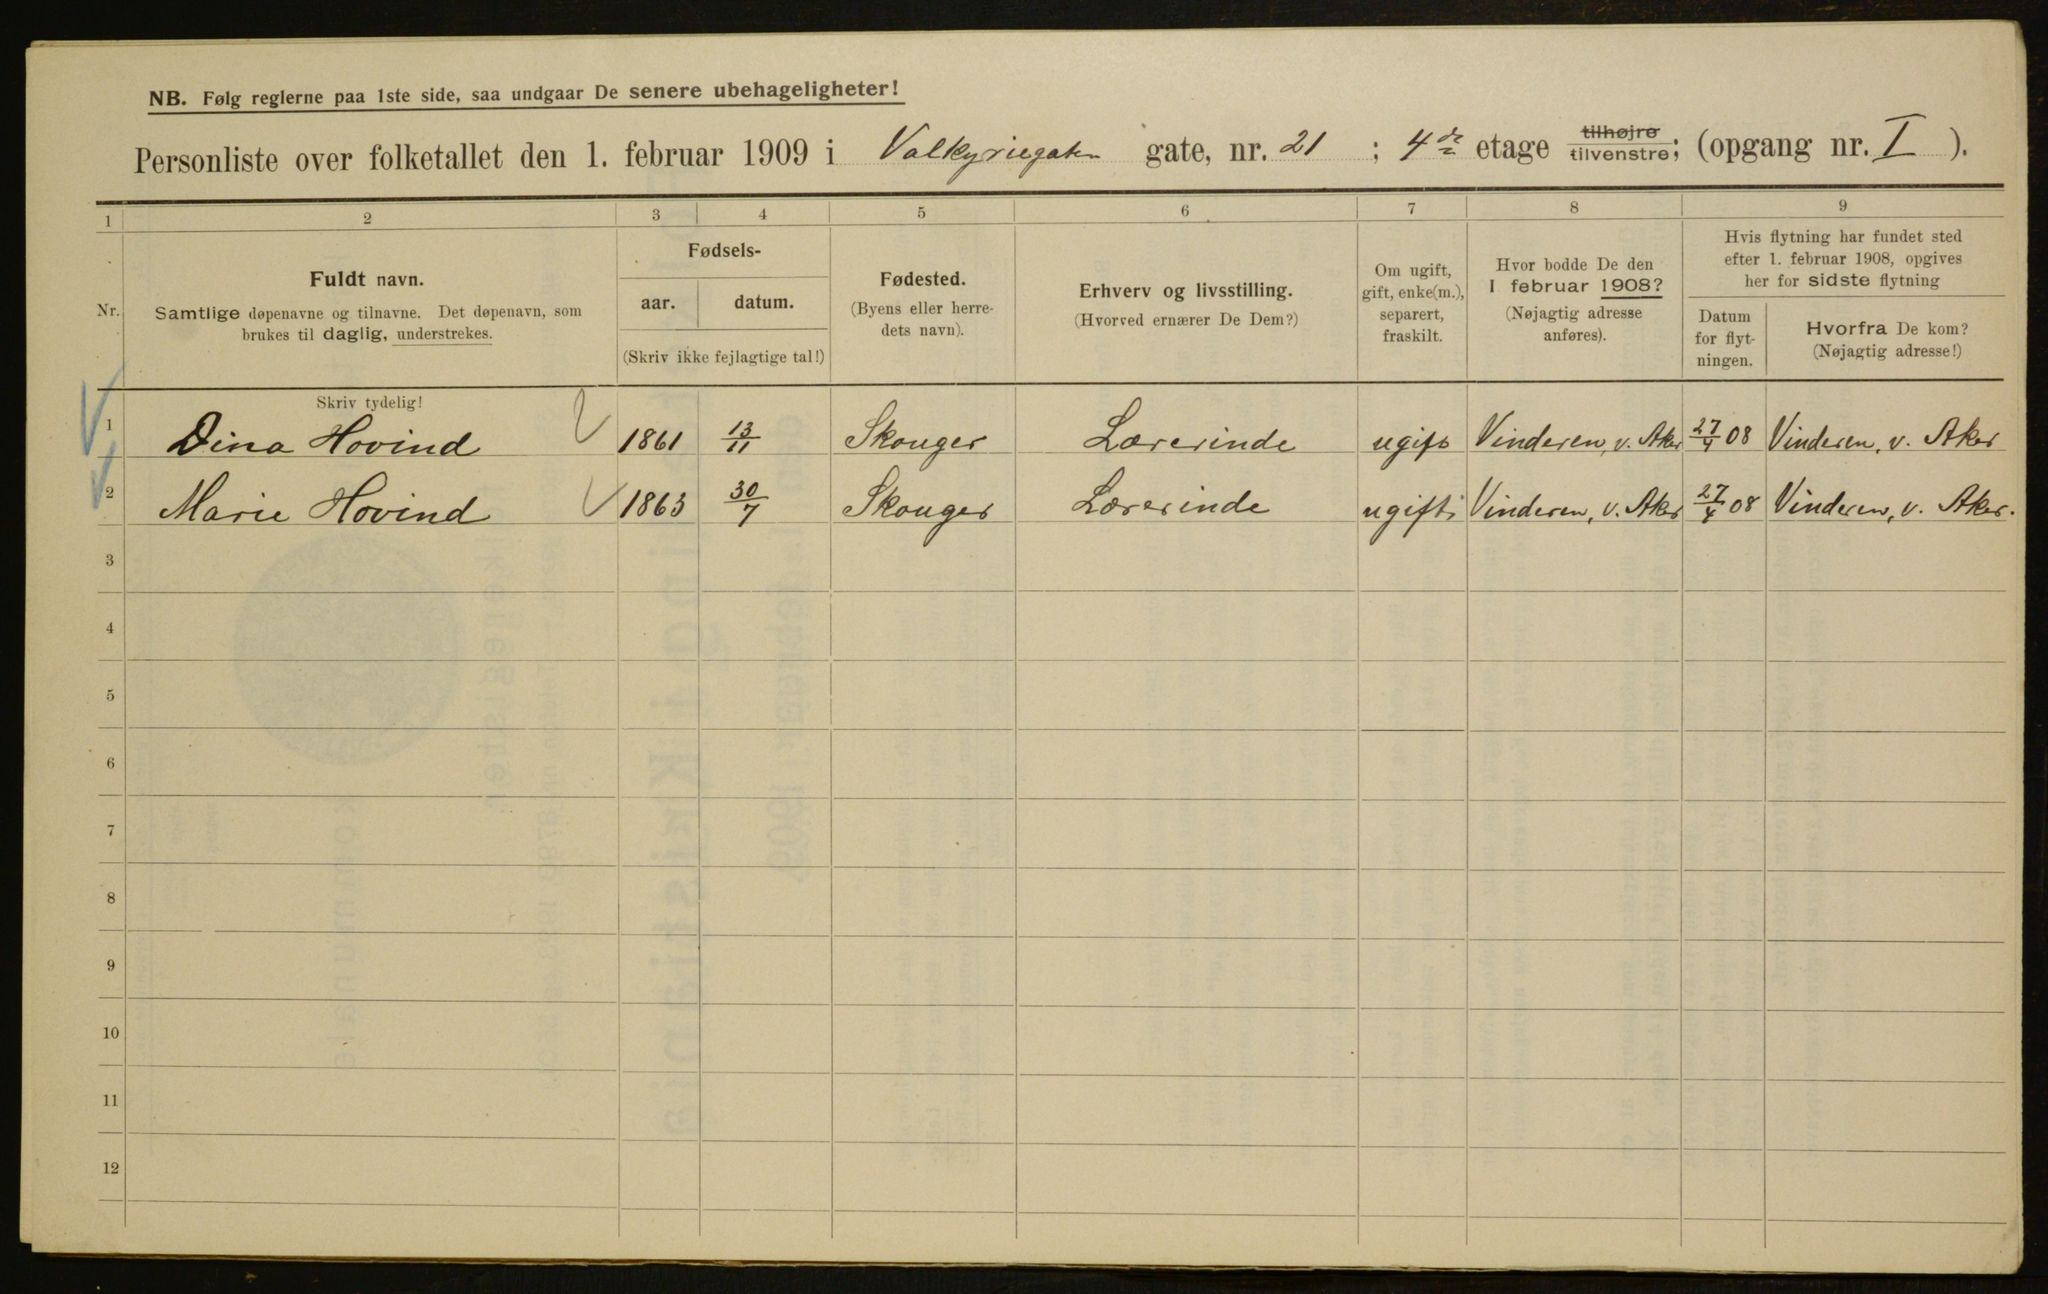 NB. Følg reglerne paa 1ste side, saa undgaar De senere ubehageligheter!
Personliste over folketallet den 1. februar 1909 i Valkyriegaten gate, nr. 21 ; 4de etage tilhøjre tilvenstre; (opgang nr. I ).
1 2 3 4 5 6 7 8 9
Nr.
Fuldt navn.
Samtlige døpenavne og tilnavne. Det døpenavn, som
brukes til daglig, understrekes.
Fødsels-
aar. datum.
(Skriv ikke fejlagtige tal!)
Fødested.
(Byens eller herre-
dets navn).
Erhverv og livsstilling.
(Hvorved ernærer De Dem?)
Om ugift,
gift, enke(m.),
separert,
fraskilt.
Hvor bodde De den
1 februar 1908?
(Nøjagtig adresse
anføres).
Hvis flytning har fundet sted
efter 1. februar 1908, opgives
her for sidste flytning
Datum
for flyt-
ningen.
Hvorfra De kom?
(Nøjagtig adresse!)
Skriv tydelig!
1 Dina Hovind 1861 13/11 Skouger Lærerinde ugift Vinderen, v. Aker 27/4 08 Vinderen, v. Aker
2 Marie Hovind 1863 30/7 Skouger Lærerinde ugift Vinderen, v. Aker 27/4 08 Vinderen, v. Aker.
3
4
5
6
7
8
9
10
11
12